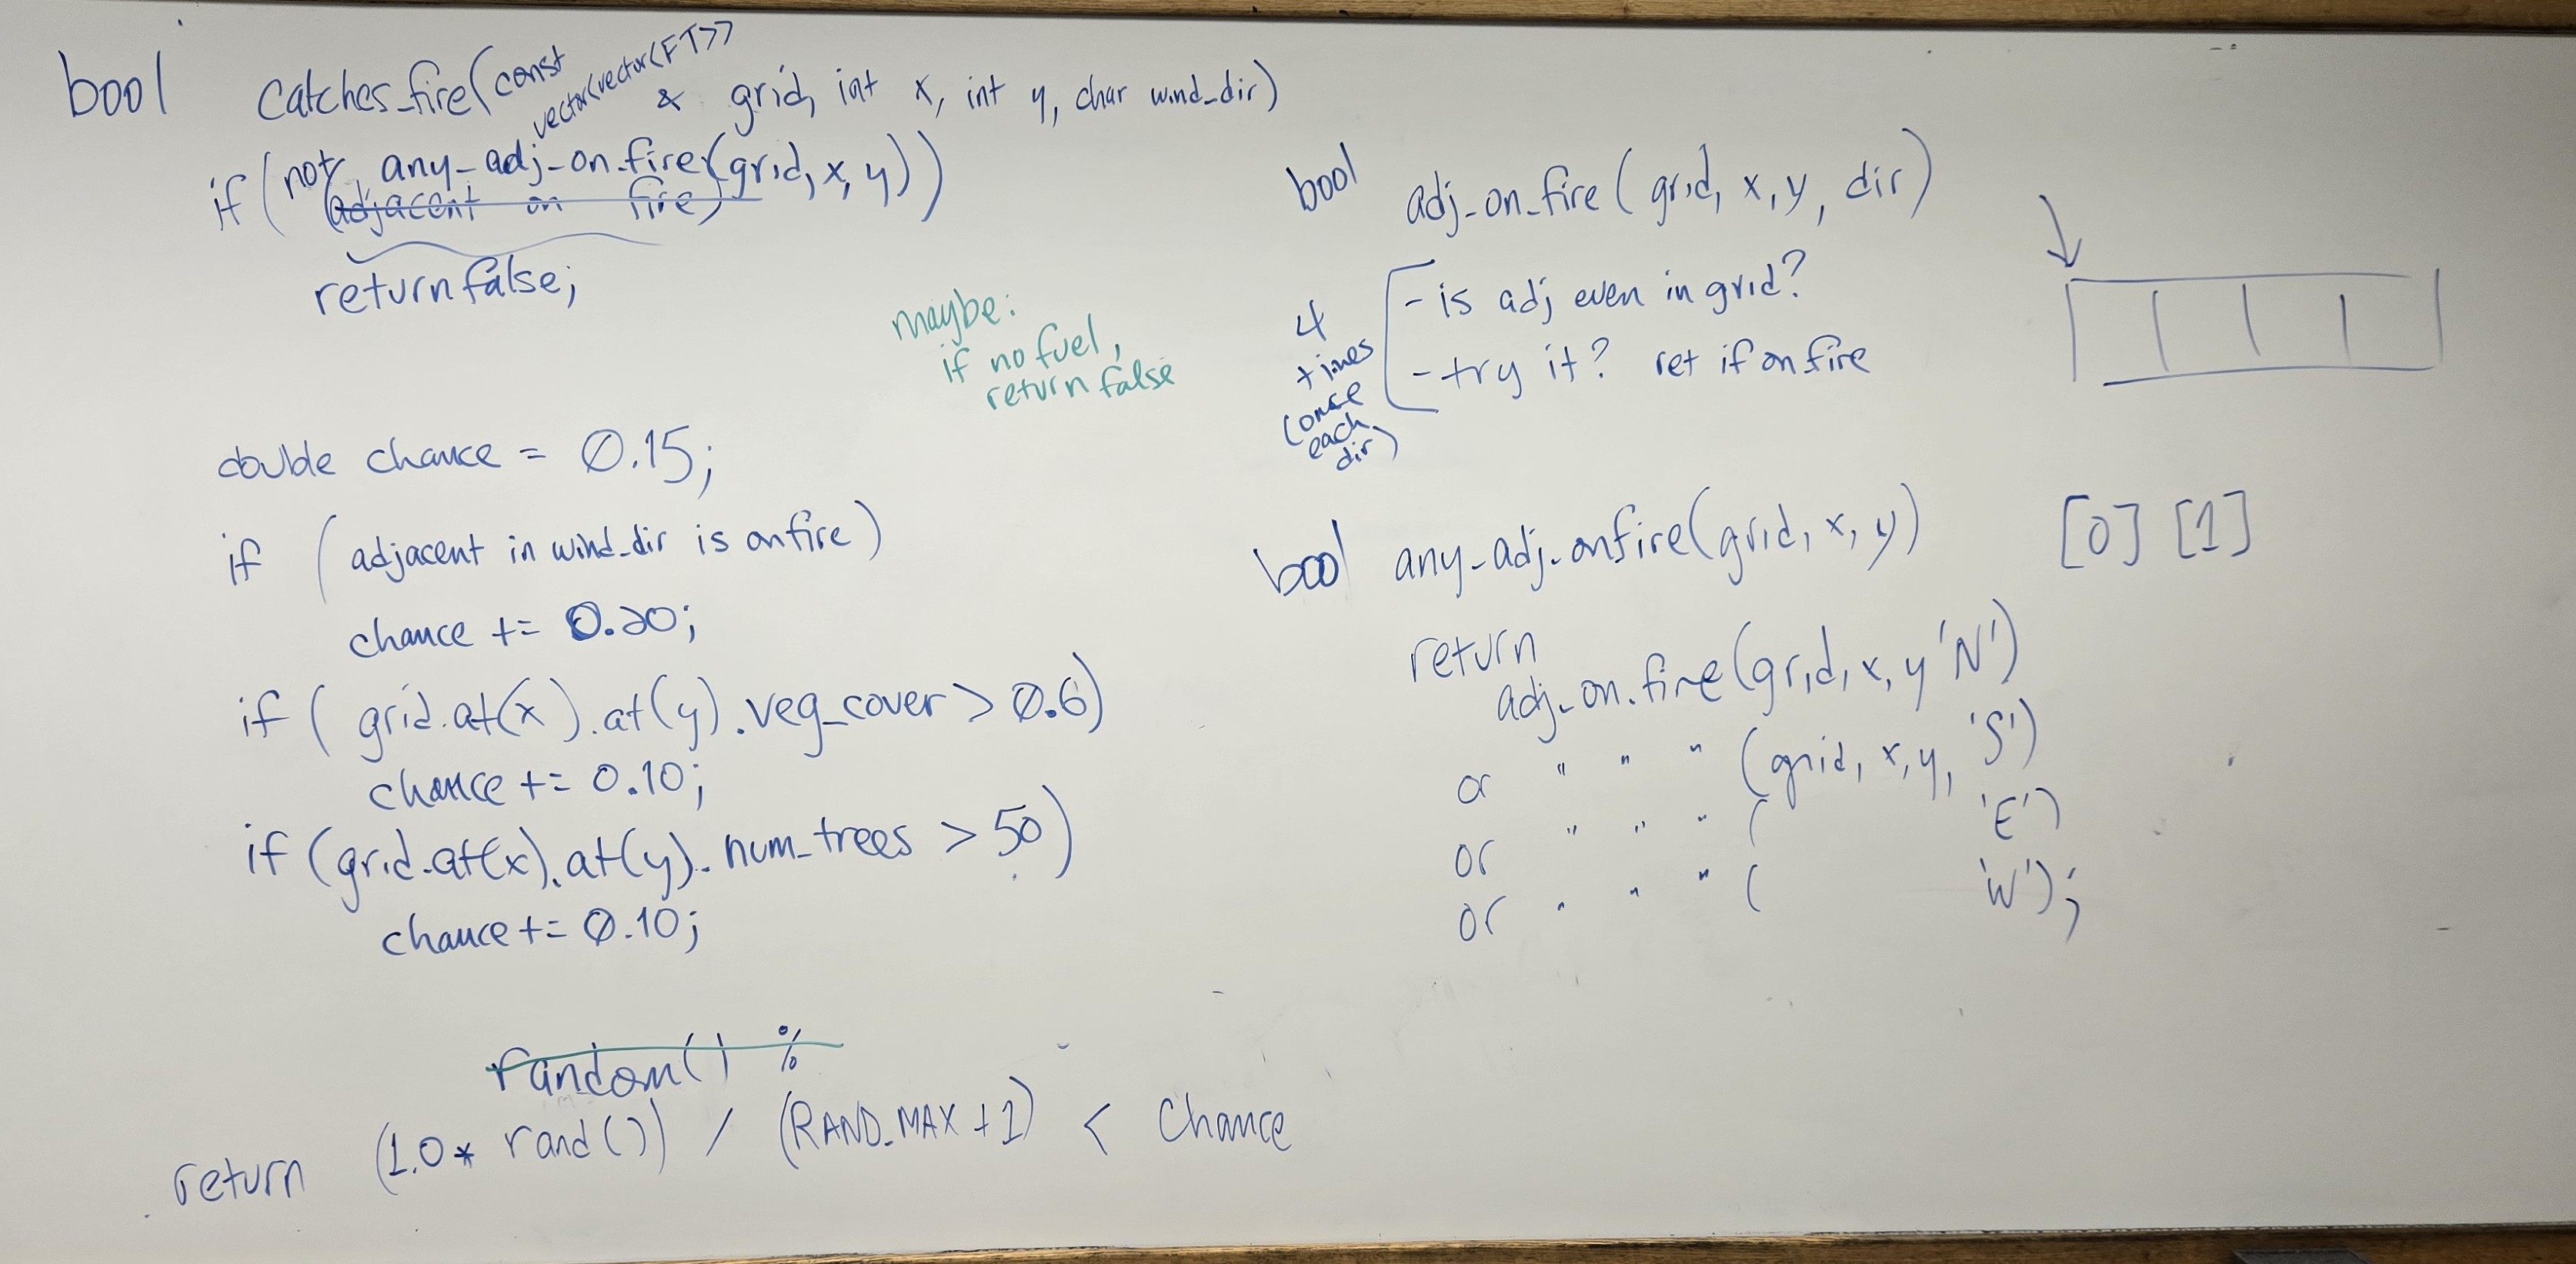 bool catches_fire(const vector<vector<FT>> & grid, int x, int y, char wind_dir)
if (not any_adj_on_fire(grid, x, y))
(adjacent on fire)
return false;
maybe:
if no fuel,
return false
double chance = 0.15;
if (adjacent in wind_dir is on fire)
chance += 0.20;
if (grid.at(x).at(y).veg_cover > 0.6)
chance += 0.10;
if (grid.at(x).at(y).num_trees > 50)
chance += 0.10;
random() %
return (1.0* rand()) / (RAND_MAX + 1) < Chance
bool adj_on_fire (grid, x, y, dir)
4
times
(once
each
dir)
- is adj even in grid?
- try it? ret if on fire
bool any_adj_onfire(grid, x, y)
return
adj_on_fire(grid, x, y 'N')
or " " " (grid, x, y, 'S')
or " " " ( 'E')
or " " " ( 'W');
[0] [1]